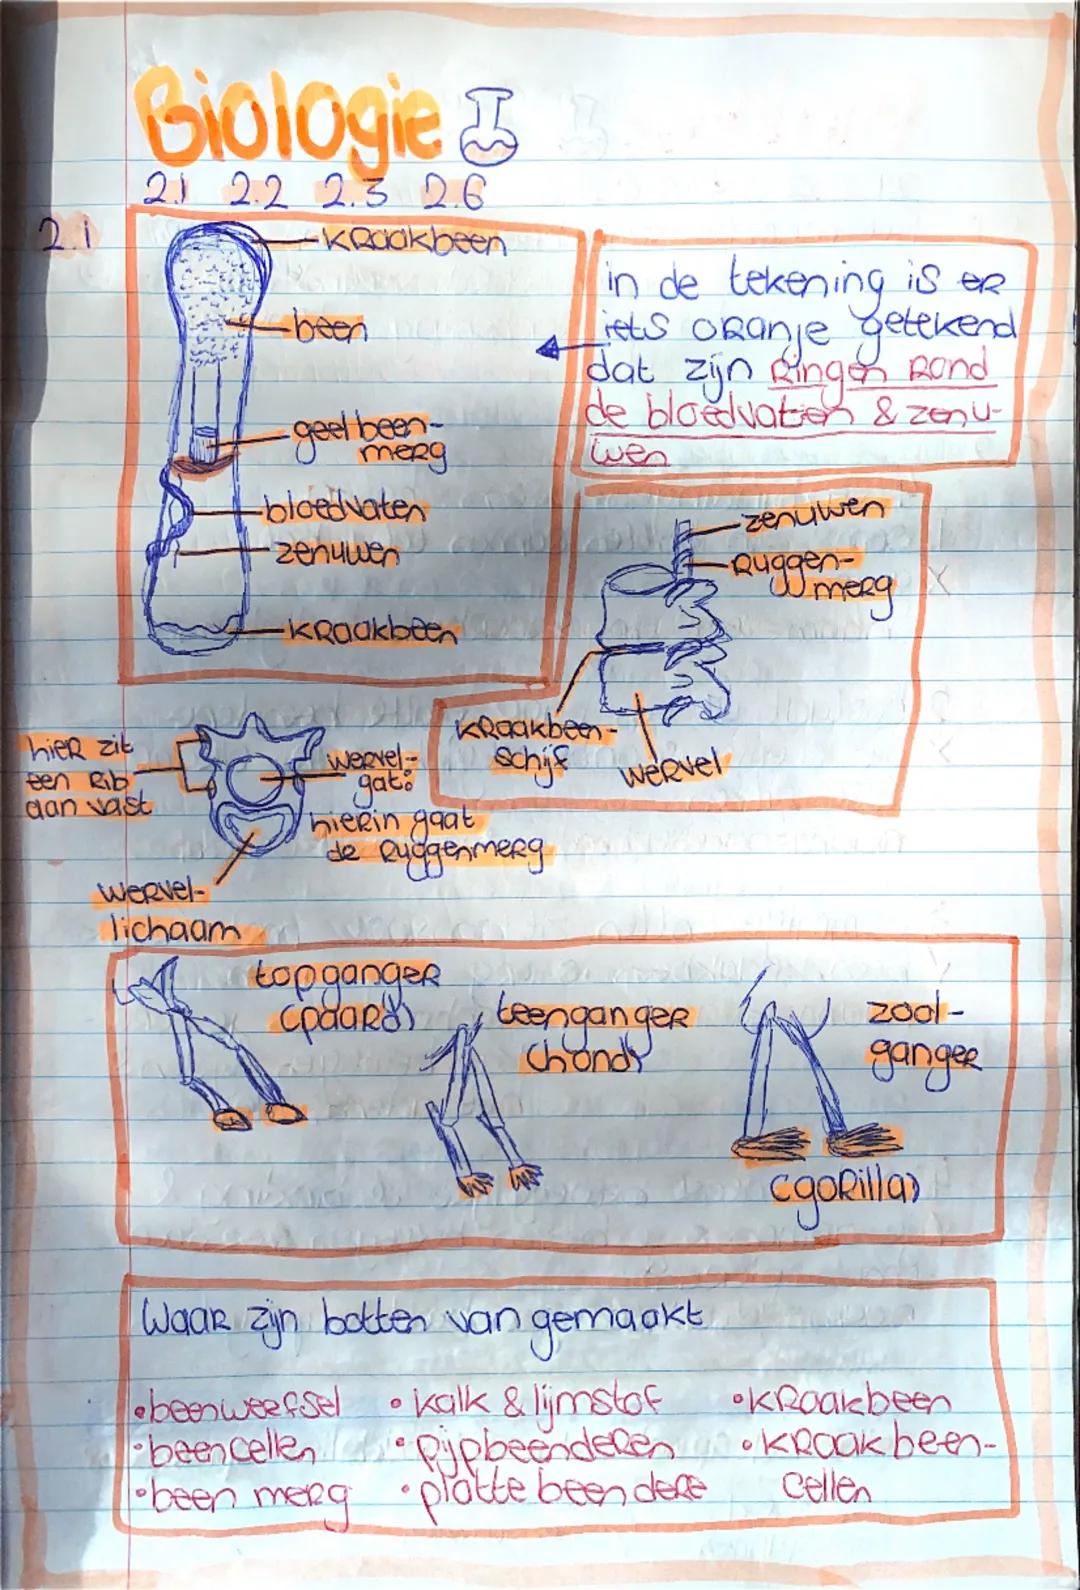 Biologie
2.1 2.2 2.3 2.6
2.1
kraakbeen
been
geel been-
merg
bloedvaten
zenuwen
kraakbeen
in de tekening is er
iets oranje getekend
dat zijn Ringen Rond
de bloedvaten & zenu-
wen
zenuwen
Ruggen-
merg
kraakbeen-
schijf
wervel
hier zit
een Rib
aan vast
wervel-
gat:
hierin gaat
de Ruggenmerg
wervel-
lichaam
topganger
(paard)
teenganger
(hond)
zool-
ganger
(gorilla)
Waar zijn botten van gemaakt
•beenweefsel •kalk & lijmstof •kraakbeen
•beencellen •Pijpbeenderen •kraakbeen-
•been merg •platte beendere cellen